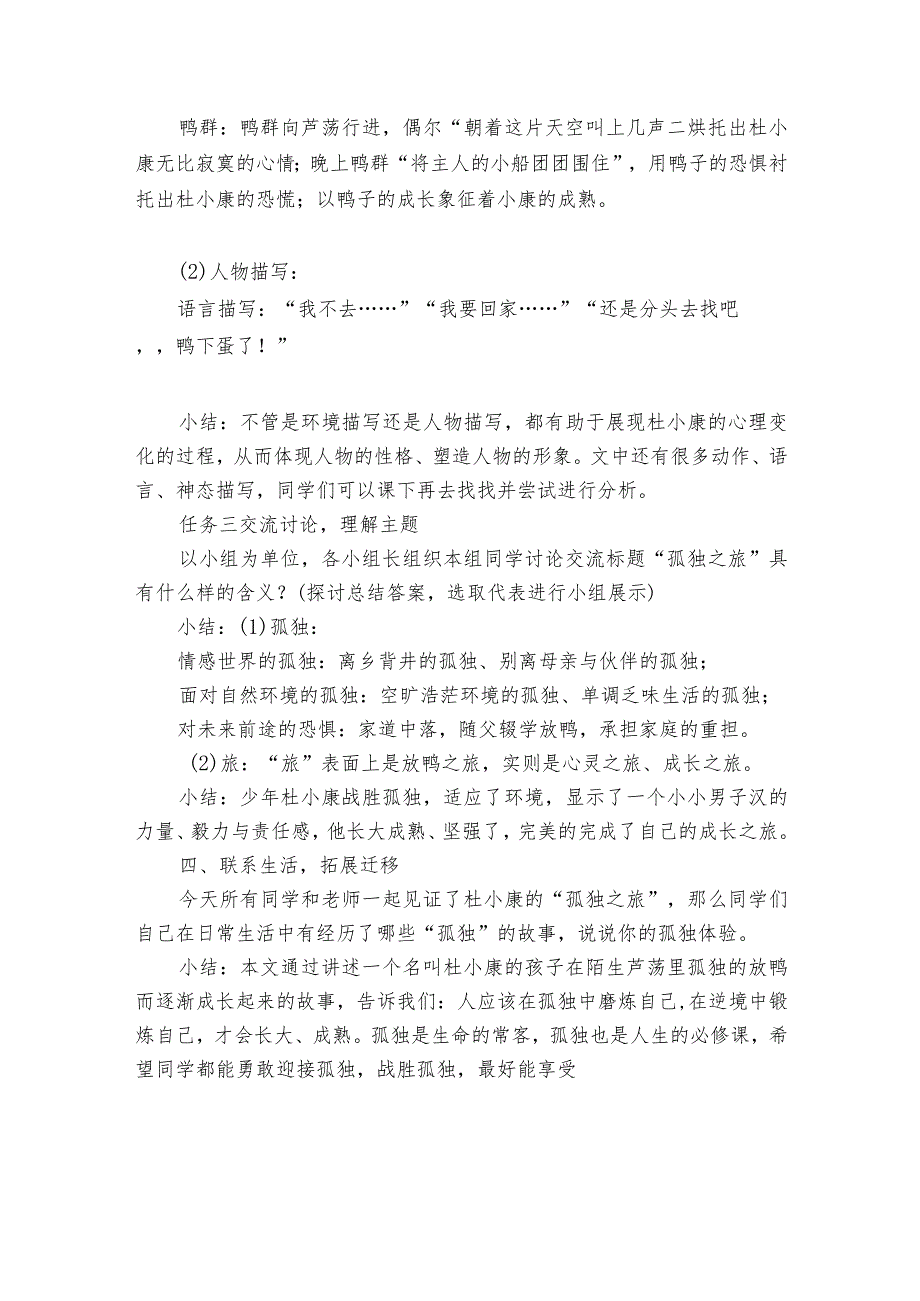 鸭群：鸭群向芦荡行进，偶尔“朝着这片天空叫上几声二烘托出杜小
康无比寂寞的心情；晚上鸭群“将主人的小船团团围住”，用鸭子的恐惧衬
托出杜小康的恐慌；以鸭子的成长象征着小康的成熟。
(2)人物描写：
语言描写：“我不去……”“我要回家……”“还是分头去找吧
，，鸭下蛋了！”
小结：不管是环境描写还是人物描写，都有助于展现杜小康的心理变
化的过程，从而体现人物的性格、塑造人物的形象。文中还有很多动作、语
言、神态描写，同学们可以课下再去找找并尝试进行分析。
任务三交流讨论，理解主题
以小组为单位，各小组长组织本组同学讨论交流标题“孤独之旅”具
有什么样的含义？(探讨总结答案，选取代表进行小组展示)
小结：(1)孤独：
情感世界的孤独：离乡背井的孤独、别离母亲与伙伴的孤独；
面对自然环境的孤独：空旷浩茫环境的孤独、单调乏味生活的孤独；
对未来前途的恐惧：家道中落，随父辍学放鸭，承担家庭的重担。
(2)旅：“旅”表面上是放鸭之旅，实则是心灵之旅、成长之旅。
小结：少年杜小康战胜孤独，适应了环境，显示了一个小小男子汉的
力量、毅力与责任感，他长大成熟、坚强了，完美的完成了自己的成长之旅。
四、联系生活，拓展迁移
今天所有同学和老师一起见证了杜小康的“孤独之旅”，那么同学们
自己在日常生活中有经历了哪些“孤独”的故事，说说你的孤独体验。
小结：本文通过讲述一个名叫杜小康的孩子在陌生芦荡里孤独的放鸭
而逐渐成长起来的故事，告诉我们：人应该在孤独中磨炼自己,在逆境中锻
炼自己，才会长大、成熟。孤独是生命的常客，孤独也是人生的必修课，希
望同学都能勇敢迎接孤独，战胜孤独，最好能享受